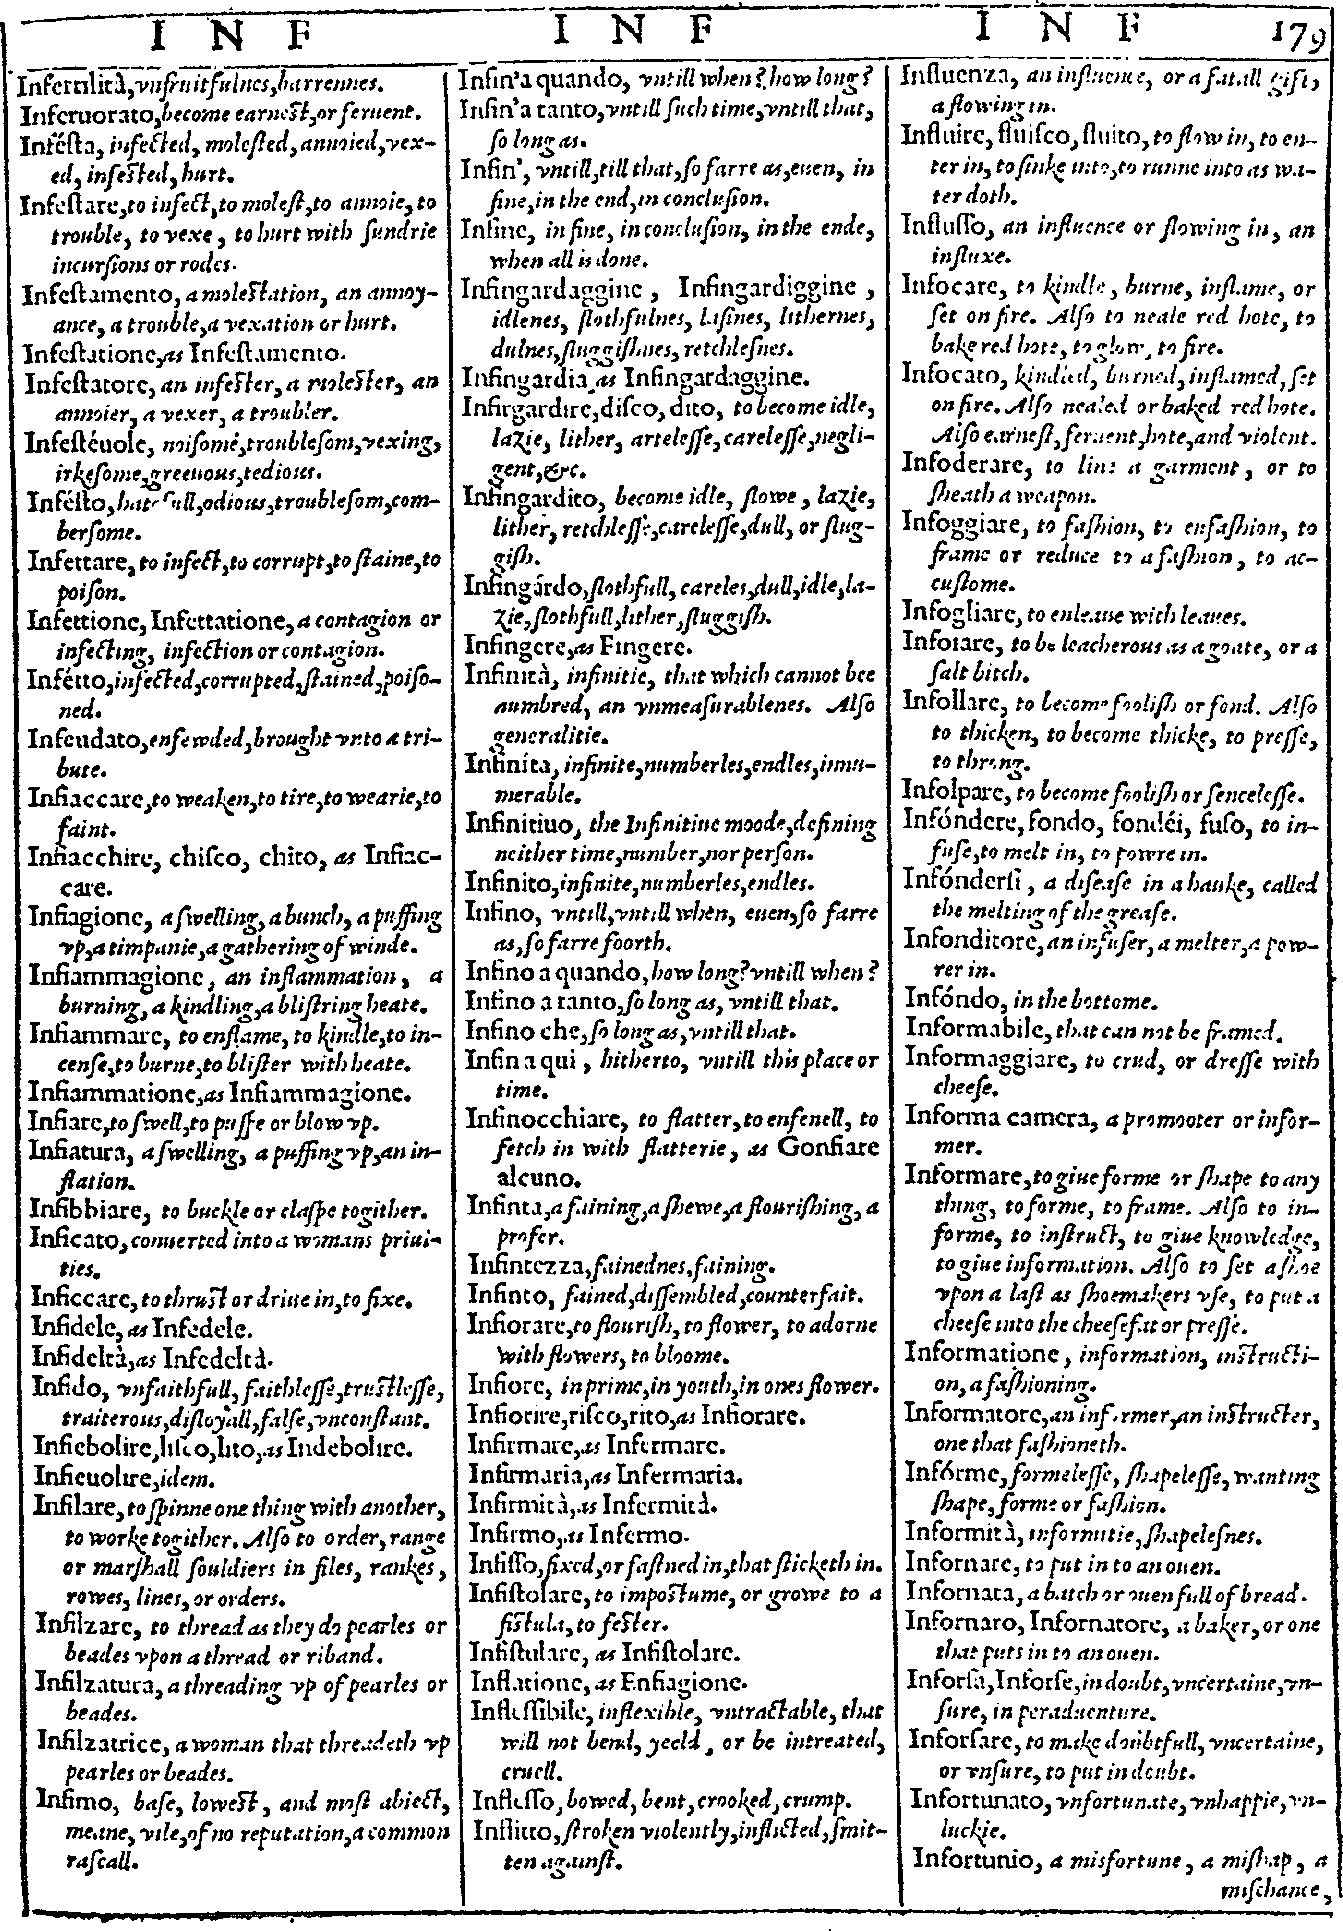 I N F
I N F
I N F
179
Infertilità, vnfruitfulnes, barrennes.
Inferuorato, become earnest, or feruent.
Infésta, infected, molested, annoied, vex-
ed, infested, hurt.
Infestare, to infect, to molest, to annoie, to
trouble, to vexe, to hurt with sundrie
incursions or rodes.
Infestamento, a molestation, an annoy-
ance, a trouble, a vexation or hurt.
Infestatione, as Infestamento.
Infestatore, an infester, a molester, an
annoier, a vexer, a troubler.
Infestéuole, noisome, troublesom, vexing,
irkesome, greeuous, tedious.
Infésto, hatefull, odious, troublesom, com-
bersome.
Infettare, to infect, to corrupt, to staine, to
poison.
Infettione, Infettatione, a contagion or
infecting, infection or contagion.
Infétto, infected, corrupted, stained, poiso-
ned.
Infeudato, enfewded, brought vnto a tri-
bute.
Infiaccare, to weaken, to tire, to wearie, to
faint.
Infiacchire, chisco, chito, as Infiac-
care.
Infiagione, a swelling, a bunch, a puffing
vp, a timpanie, a gathering of winde.
Infiammagione, an inflammation, a
burning, a kindling, a blistring heate.
Infiammare, to enflame, to kindle, to in-
cense, to burne, to blister with heate.
Infiammatione, as Infiammagione.
Infiare, to swell, to puffe or blow vp.
Infiatura, a swelling, a puffing vp, an in-
flation.
Infibbiare, to buckle or claspe togither.
Inficato, conuerted into a womans priui-
ties.
Inficcare, to thrust or driue in, to fixe.
Infidele, as Infedele.
Infideltà, as Infedeltà.
Infido, vnfaithfull, faithlesse, trustlesse,
traiterous, disloyall, false, vnconstant.
Infiebolire, lisco, lito, as Indebolire.
Infieuolire, idem.
Infilare, to spinne one thing with another,
to worke togither. Also to order, range
or marshall souldiers in files, rankes,
rowes, lines, or orders.
Infilzare, to thread as they do pearles or
beades vpon a thread or riband.
Infilzatura, a threading vp of pearles or
beades.
Infilzatrice, a woman that threadeth vp
pearles or beades.
Infimo, base, lowest, and most abiect,
meane, vile, of no reputation, a common
rascall.
Infin'a quando, vntill when? how long?
Infin'a tanto, vntill such time, vntill that,
so long as.
Infin', vntill, till that, so farre as, euen, in
fine, in the end, in conclusion.
Infine, in fine, in conclusion, in the ende,
when all is done.
Infingardaggine, Infingardiggine,
idlenes, slothfulnes, lasines, lithernes,
dulnes, sluggishnes, retchlesnes.
Infingardia as Infingardaggine.
Infirgardire, disco, dito, to become idle,
lazie, lither, artelesse, carelesse, negli-
gent, &c.
Infingardito, become idle, slowe, lazie,
lither, retchlesse, carelesse, dull, or slug-
gish.
Infingárdo, slothfull, careles, dull, idle, la-
zie, slothfull, lither, sluggish.
Infingere, as Fingere.
Infinità, infinitie, that which cannot bee
numbred, an vnmeasurablenes. Also
generalitie.
Infiníta, infinite, numberles, endles, innu-
merable.
Infinitiuo, the Infinitiue moode, defining
neither time, number, nor person.
Infinito, infinite, numberles, endles.
Infino, vntill, vntill when, euen, so farre
as, so farre foorth.
Infino a quando, how long? vntill when?
Infino a tanto, so long as, vntill that.
Infino che, so long as, vntill that.
Infin a qui, hitherto, vntill this place or
time.
Infinocchiare, to flatter, to enfenell, to
fetch in with flatterie, as Gonfiare
alcuno.
Infinta, a faining, a shewe, a flourishing, a
profer.
Infintezza, fainednes, faining.
Infinto, fained, dissembled, counterfait.
Infiorare, to flourish, to flower, to adorne
with flowers, to bloome.
Infiore, in prime, in youth, in ones flower.
Infiorire, risco, rito, as Infiorare.
Infirmare, as Infermare.
Infirmaria, as Infermaria.
Infirmità, as Infermità.
Infirmo, as Infermo.
Infisso, fixed, or fastned in, that sticketh in.
Infistolare, to impostume, or growe to a
fistula, to fester.
Infistulare, as Infistolare.
Inflatione, as Enfiagione.
Inflessibile, inflexible, vntractable, that
will not bend, yeeld, or be intreated,
cruell.
Inflesso, bowed, bent, crooked, crump.
Inflitto, stroken violently, inflicted, smit-
ten against.
Influenza, an influence, or a fatall gift,
a flowing in.
Influire, fluisco, fluito, to flow in, to en-
ter in, to sinke into, to runne into as wa-
ter doth.
Influsso, an influence or flowing in, an
influxe.
Infocare, to kindle, burne, inflame, or
set on fire. Also to neale red hote, to
bake red hote, to glow, to fire.
Infocato, kindled, burned, inflamed, set
on fire. Also nealed or baked red hote.
Also earnest, feruent, hote, and violent.
Infoderare, to line a garment, or to
sheath a weapon.
Infoggiare, to fashion, to enfashion, to
frame or reduce to a fashion, to ac-
custome.
Infogliare, to enleaue with leaues.
Infoiare, to be leacherous as a goate, or a
salt bitch.
Infollare, to become foolish or fond. Also
to thicken, to become thicke, to presse,
to throng.
Infolpare, to become foolish or sencelesse.
Infóndere, fondo, fondéi, fuso, to in-
fuse, to melt in, to powre in.
Infóndersi, a disease in a hauke, called
the melting of the grease.
Infonditore, an infuser, a melter, a pow-
rer in.
Infóndo, in the bottome.
Informabile, that can not be framed.
Informaggiare, to crud, or dresse with
cheese.
Informa camera, a promooter or infor-
mer.
Informare, to giue forme or shape to any
thing, to forme, to frame. Also to in-
forme, to instruct, to giue knowledge,
to giue information. Also to set a shoe
vpon a last as shoemakers vse, to put a
cheese into the cheesefat or presse.
Informatione, information, instructi-
on, a fashioning.
Informatore, an informer, an instructer,
one that fashioneth.
Infórme, formelesse, shapelesse, wanting
shape, forme or fashion.
Informità, informitie, shapelesnes.
Infornare, to put in to an ouen.
Infornata, a batch or ouen full of bread.
Infornaro, Infornatore, a baker, or one
that puts in to an ouen.
Inforsa, Inforse, in doubt, vncertaine, vn-
sure, in peraduenture.
Inforsare, to make doubtfull, vncertaine,
or vnsure, to put in doubt.
Infortunato, vnfortunate, vnhappie, vn-
luckie.
Infortunio, a misfortune, a mishap, a
mischance,